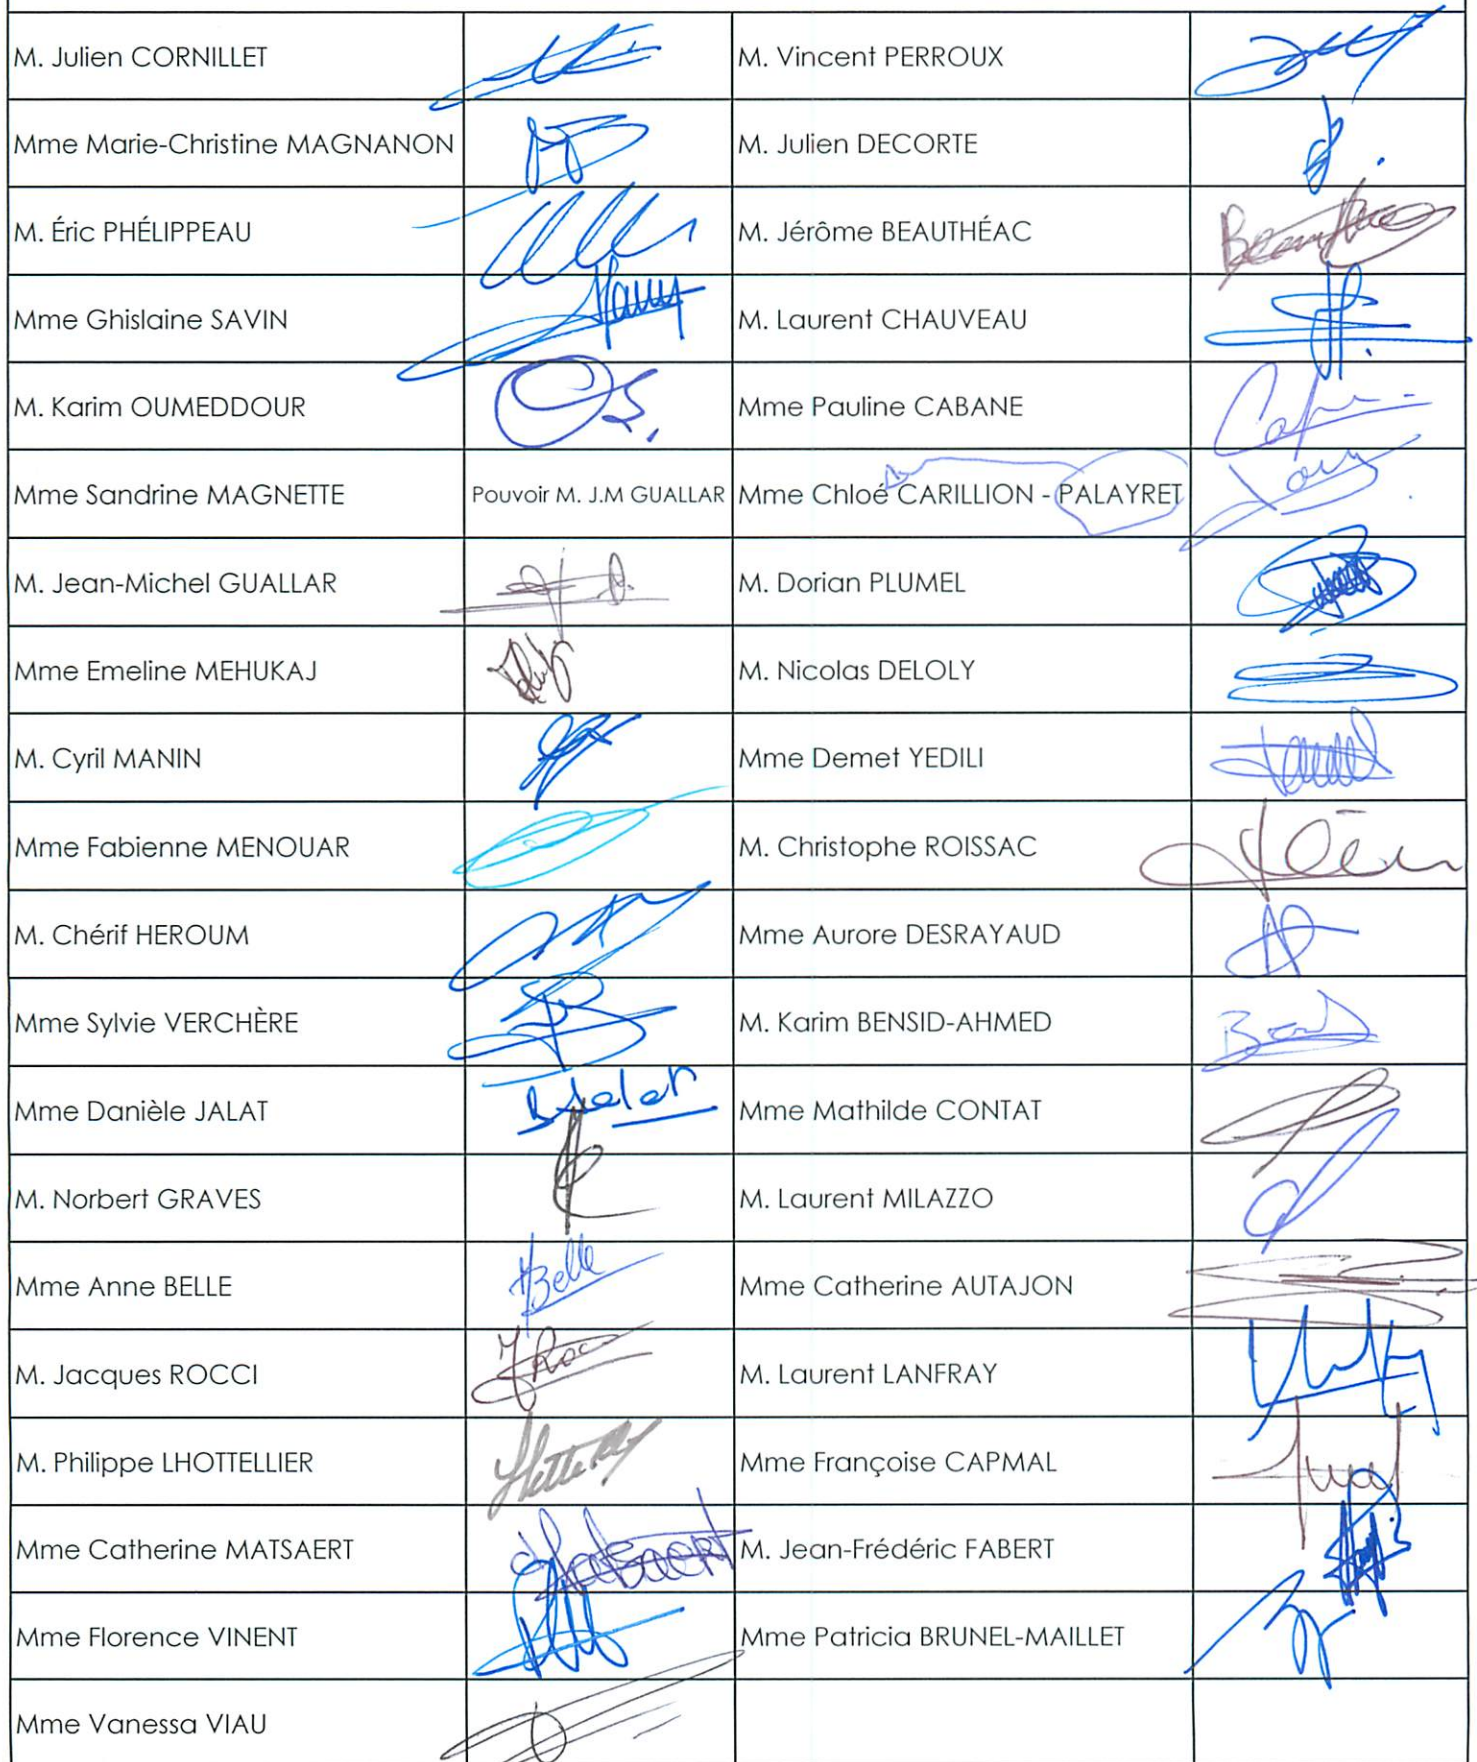 M. Julien CORNILLET
M. Vincent PERROUX
Mme Marie-Christine MAGNANON
M. Julien DECORTE
M. Éric PHÉLIPPEAU
M. Jérôme BEAUTHÉAC
Mme Ghislaine SAVIN
M. Laurent CHAUVEAU
M. Karim OUMEDDOUR
Mme Pauline CABANE
Mme Sandrine MAGNETTE Pouvoir M. J.M GUALLAR
Mme Chloé CARILLION - PALAYRET
M. Jean-Michel GUALLAR
M. Dorian PLUMEL
Mme Emeline MEHUKAJ
M. Nicolas DELOLY
M. Cyril MANIN
Mme Demet YEDILI
Mme Fabienne MENOUAR
M. Christophe ROISSAC
M. Chérif HEROUM
Mme Aurore DESRAYAUD
Mme Sylvie VERCHÈRE
M. Karim BENSID-AHMED
Mme Danièle JALAT
Mme Mathilde CONTAT
M. Norbert GRAVES
M. Laurent MILAZZO
Mme Anne BELLE Belle
Mme Catherine AUTAJON
M. Jacques ROCCI
M. Laurent LANFRAY
M. Philippe LHOTTELLIER
Mme Françoise CAPMAL
Mme Catherine MATSAERT
M. Jean-Frédéric FABERT
Mme Florence VINENT
Mme Patricia BRUNEL-MAILLET
Mme Vanessa VIAU